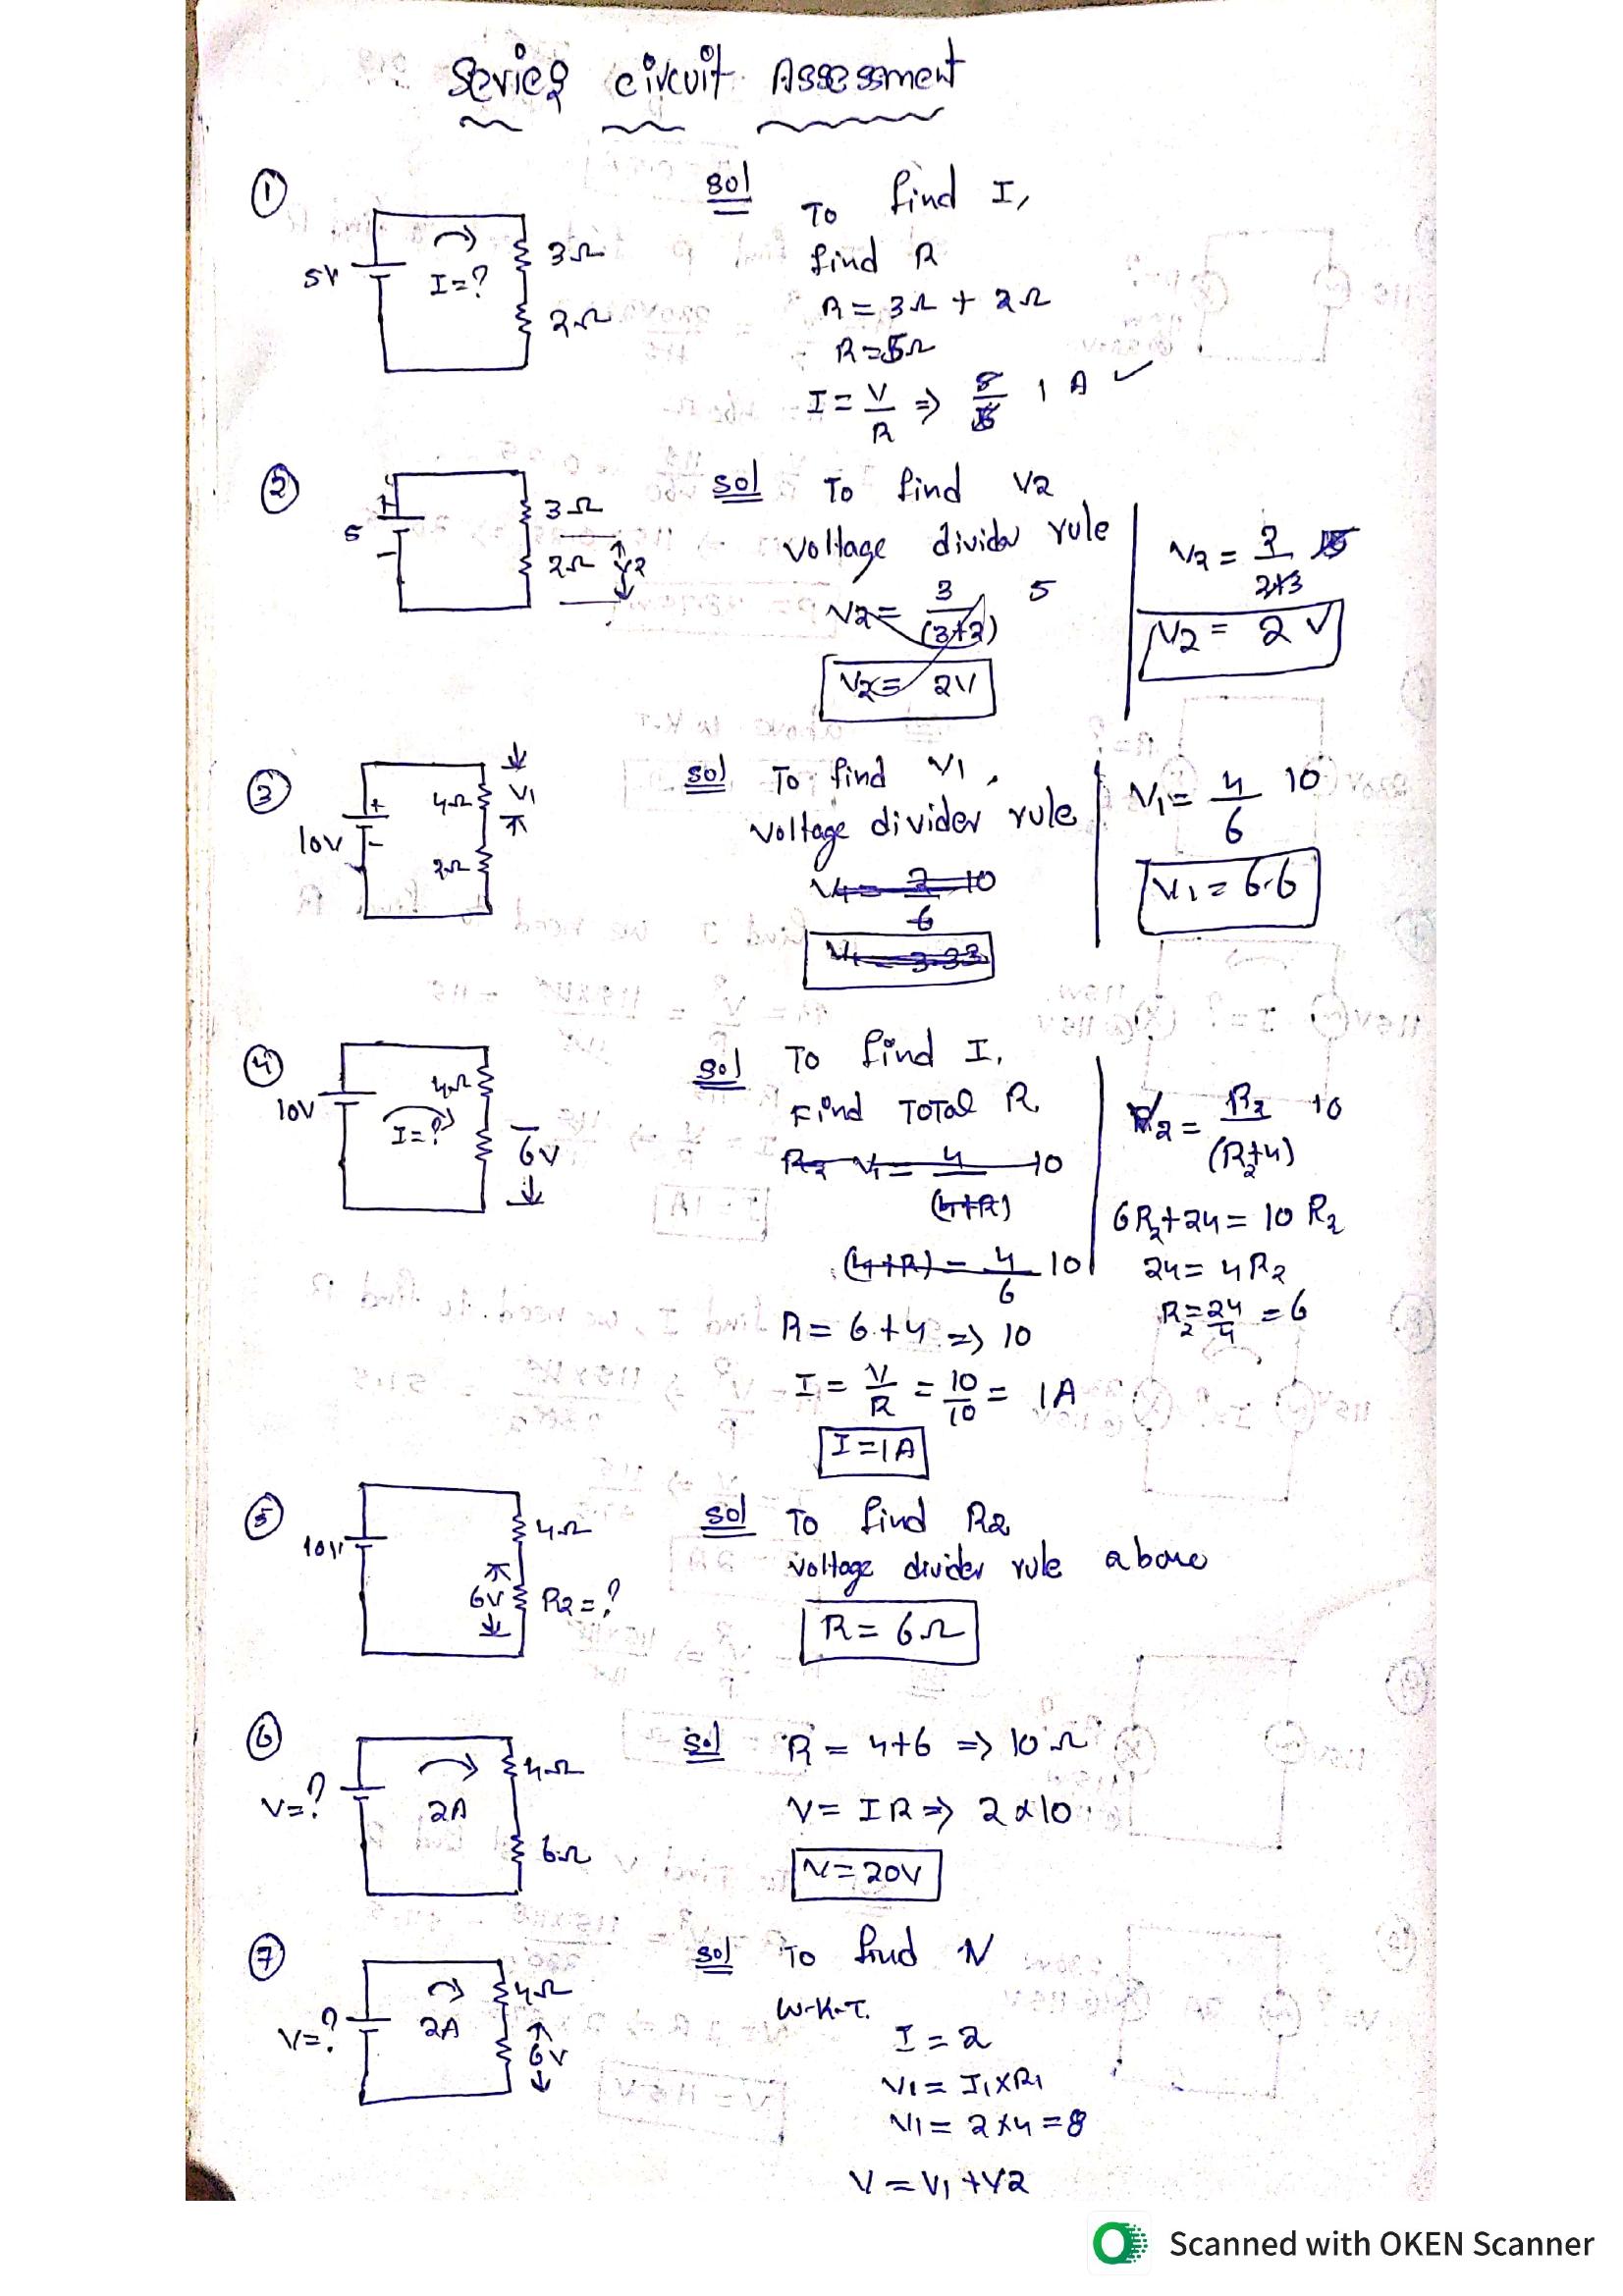 Series circuit Assessment
①
5V
I=?
3Ω
2Ω
sol
To find I,
find R
R = 3Ω + 2Ω
R=5Ω
I = V/R => 5/5 1 A ✓
②
5
+
-
3Ω
2Ω
V2
sol To find V2
voltage divider rule
V2= 3/(3+2) 5
V2= 2V
V2 = 2/2+3 5
V2 = 2V
③
10V
+
-
4Ω
V1
2Ω
sol To find V1,
voltage divider rule
V1= 2/6 10
V1 = 3.33
V1= 4/6 10
V1 = 6.6
④
10V
4Ω
I=?
6V
sol To find I,
Find Total R
R2 V1= 4/(4+R) 10
(4+R) = 4/6 10
R = 6+4 => 10
I = V/R = 10/10 = 1A
I=1A
V2 = R2/(R2+4) 10
6R2+24 = 10 R2
24 = 4R2
R2=24/4 = 6
⑤
10V
4Ω
6V
R2=?
sol To find R2
voltage divider rule above
R = 6Ω
⑥
V=?
2A
4Ω
6Ω
sol R = 4+6 => 10Ω
V= IR => 2x10
V=20V
⑦
V=?
2A
4Ω
6V
sol To find V
W.K.T.
I = 2
V1= I1XR1
V1= 2x4=8
V = V1+V2
Scanned with OKEN Scanner